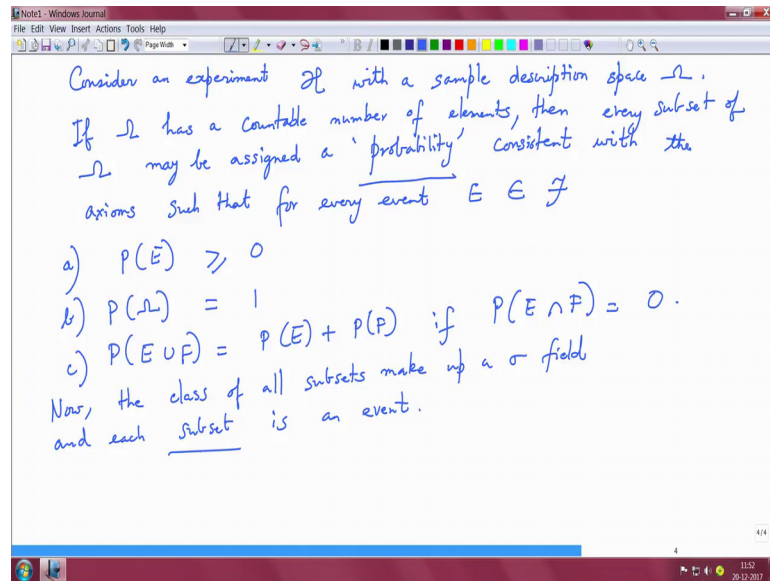 Note1 - Windows Journal
File Edit View Insert Actions Tools Help
Page Width
Consider an experiment ℋ with a sample description space Ω.
If Ω has a countable number of elements, then every subset of
Ω may be assigned a 'probability' consistent with the
axioms such that for every event E ∈ ℱ
a) P(E) ⩾ 0
b) P(Ω) = 1
c) P(E ∪ F) = P(E) + P(F) if P(E ∩ F) = 0.
Now, the class of all subsets make up a σ field
and each subset is an event.
4/4
4
11:52
20-12-2017